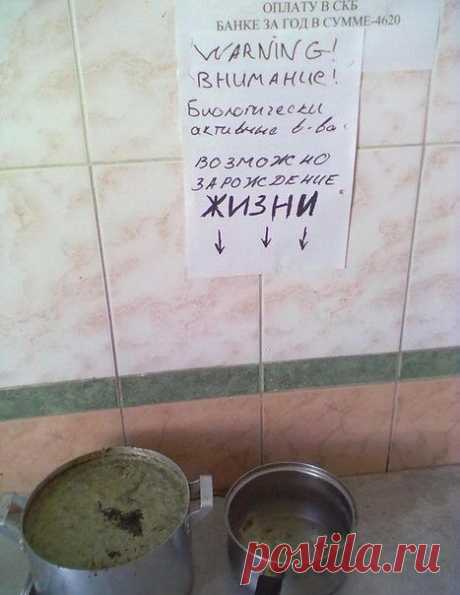 ОПЛАТУ В СКБ
БАНКЕ ЗА ГОД В СУММЕ-4620
WARNING!
ВНИМАНИЕ!
Биологически
активные в-ва.
ВОЗМОЖНО
ЗАРОЖДЕНИЕ
ЖИЗНИ
↓ ↓ ↓
postila.ru